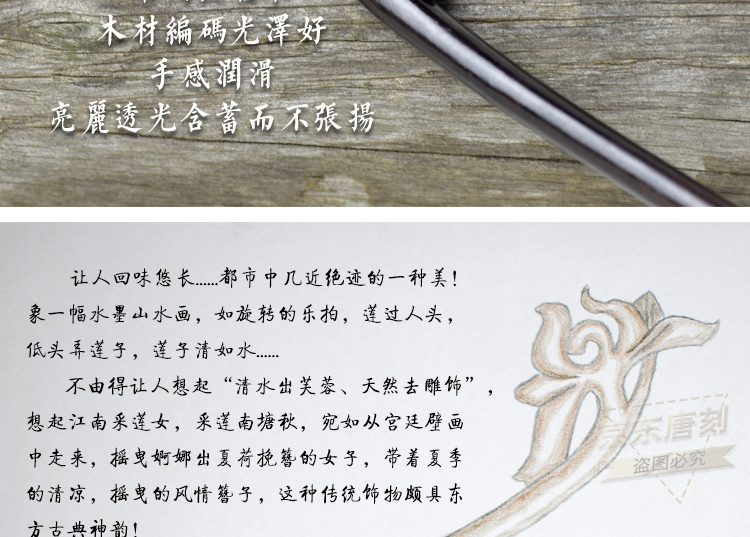 木材編碼光澤好
手感潤滑
亮麗透光含蓄而不張揚
让人回味悠长……都市中几近绝迹的一种美！
象一幅水墨山水画，如旋转的乐拍，莲过人头，
低头弄莲子，莲子清如水……
不由得让人想起“清水出芙蓉、天然去雕饰”，
想起江南采莲女，采莲南塘秋，宛如从宫廷壁画
中走来，摇曳婀娜出夏荷挽簪的女子，带着夏季
的清凉，摇曳的风情簪子，这种传统饰物颇具东
方古典神韵！
东唐刻
盗图必究